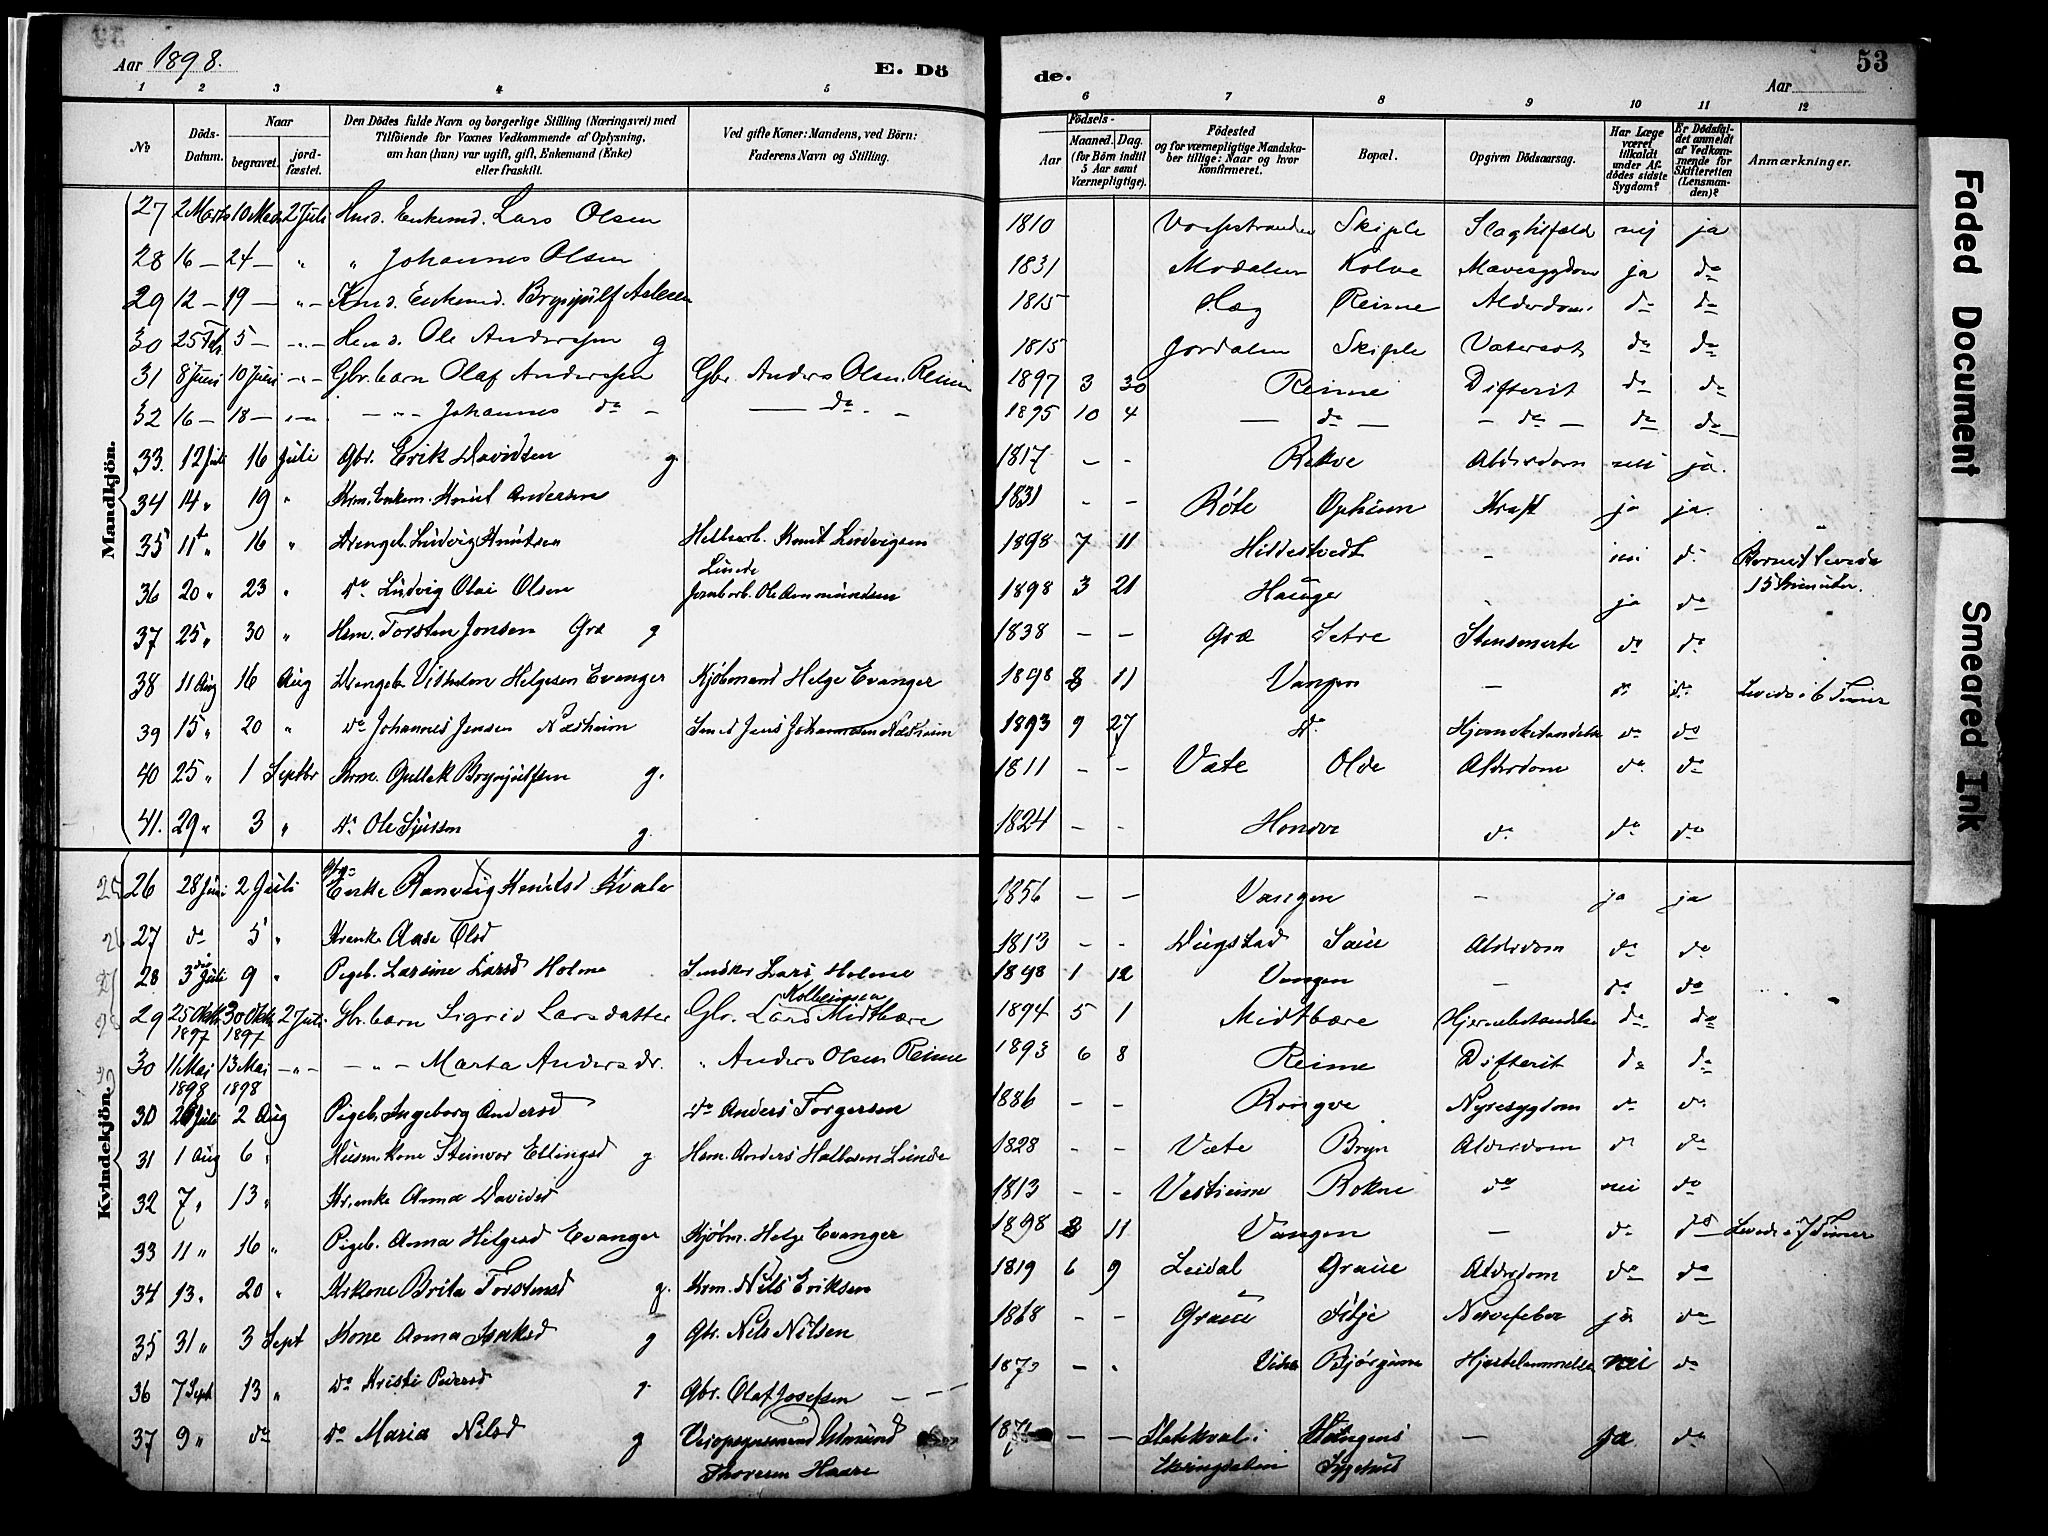 Aar 1898.
E. Dö
de.
Aar
53
1 2 3 4 5 6 7 8 9 10 11 12
No
Döds-Datum.
Naar
begravet.
jord-fæstet.
Den Dödes fulde Navn og borgerlige Stilling (Næringsvei) med
Tilföiende for Voxnes Vedkommende af Oplysning,
om han (hun) var ugift, gift, Enkemand (Enke)
eller fraskilt.
Ved gifte Koner: Mandens, ved Börn:
Faderens Navn og Stilling.
Födsels-
Aar
Maaned. Dag.
(for Börn indtil
5 Aar samt
Værnepligtige).
Födested
og for værnepligtige Mandska-
ber tillige: Naar og hvor
konfirmeret.
Bopæl.
Opgiven Dödsaarsag.
Har Læge
været
tilkaldt
under Af-
dödes sidste
Sygdom?
Er Dödsfal-
det anmeldt
af Vedkom-
mende for
Skifteretten
(Lensman-
den)?
Anmærkninger.
Mandkjön.
27 2 Marts 10 Mars 2 Juli Husd. Enkemd. Lars Olsen 1810 Skiple nej ja
28 16 — 24 — " " Johannes Olsen 1831 Modalen Kolve Mavesygdom ja do
29 12 — 19 — " — Enkemd. Brynjulf 1815 Reime Alderdom do do
30 25 Feb. 5 — " — Ole Anderssen g 1815 Jordalen Skiple Vatersot do do
31 8 Juni 10 Juni — " — Gbr. barn Olaf Anderssen Gbr. Anders Olsen Reime 1897 3 30 Reime Difterit do do
32 16 — 18 — " — — " — Johannes do — — do — 1895 10 4 — do — — do — do do
33. 12 Juli 16 Juli Gbr. Erik Davidsen g. 1817 - - Rekve Alderdom nei ja.
34 14 " 19 " Krm. Enkem. Knut Andersen 1831 - - Röte Opheim Kræft ja ja.
35 11te " 16 " Drengeb. Ludvig Knutsen Knut Ludvigsen Lunde 1898 7 11 Hildestvedt - nei do Barnet levede 15 Minuter.
36 20 " 23 " do Ludvig Olai Olsen Jernbarb. Ole Aammundsen 1898 3 21 Hauge - ja do
37 25 " 30 " Hsm. Torsten Jonsen Græ g 1838 - - Græ Setre Stensmerte do do
38 11 Aug 16 Aug Drengeb. Vilhelm Helgesen Evanger Kjöbmand Helge Evanger 1898 8 11 Vangen - do do Levede i 6 Timer
39 15 " 20 " do Johannes Jensen Nedsheim Smed Jens Johannesen Nedsheim 1893 9 27 do Hjernebetændelse do do
40 25 " 1 Septbr Krm. Gullek Brynjulfsen g. 1811 - - Væte Olde Alderdom do do
41. 29 " 3 " do Ole Sjursen g. 1824 - - Hondve do do do
Kvindekjön.
26 28 Juni 2 Juli Enke Ranveig Knutsd Kvale 1856 - - Vangen - ja ja
27 do 5 " Krenke Aase Olsd 1813 - - Dugstad Saue Alderdom do do
28 3 Juli 9 " Pigeb. Larsine Larsd Holme Lars Holme 1898 1 12 Vangen - do do
29 25 Oktb. 1897 30 Oktb. 1897 2 Juli Gbr. barn Sigrid Larsdatter Gbr. Lars Kolbeinsen Midtbære 1894 5 1 Midtbære Hjernebetændelse do do
30 11 Mai 1898 13 Mai 1898 — " — — " — Marta Andersdr. " Anders Olsen Reime 1893 6 8 Reime Difterit do do
30 26 Juli 2 Aug Pigeb. Ingeborg Andersd do Anders Torgersen 1886 - - Ringve Nyresygdom do do
31 1 Aug 6 " Husm. kone Steinvor Ellingsd g Hsm. Anders Halbosen Lunde 1828 - - Væte Bryn Alderdom do do
32 7 " 13 " Kr.enke Anna Davidsd 1813 - - Rokne do nei do
33 11 " 16 " Pigeb. Anna Helgesd Evanger Kjöbm. Helge Evanger 1898 8 11 Vangen - do do Levede i 7 Timer
34 13 " 20 " Krkone Brita Torstensd g. Krm. Nils Eriksen 1819 6 9 Leidal Graue Alderdom do do
35 31 " 3 Sept Kone Anna Isaksd g Gbr. Nils Nilsen 1868 - - Graue Tilje Nervefeber ja do
36 7 Sept 13 " do Kristi Pedersd g Gbr. Olaf Josefsen - - Bjørgum nei do
37 9 " do do Maria Nilsd g Thoresen Haare - - - ja do
Faded Document
Smeared Ink